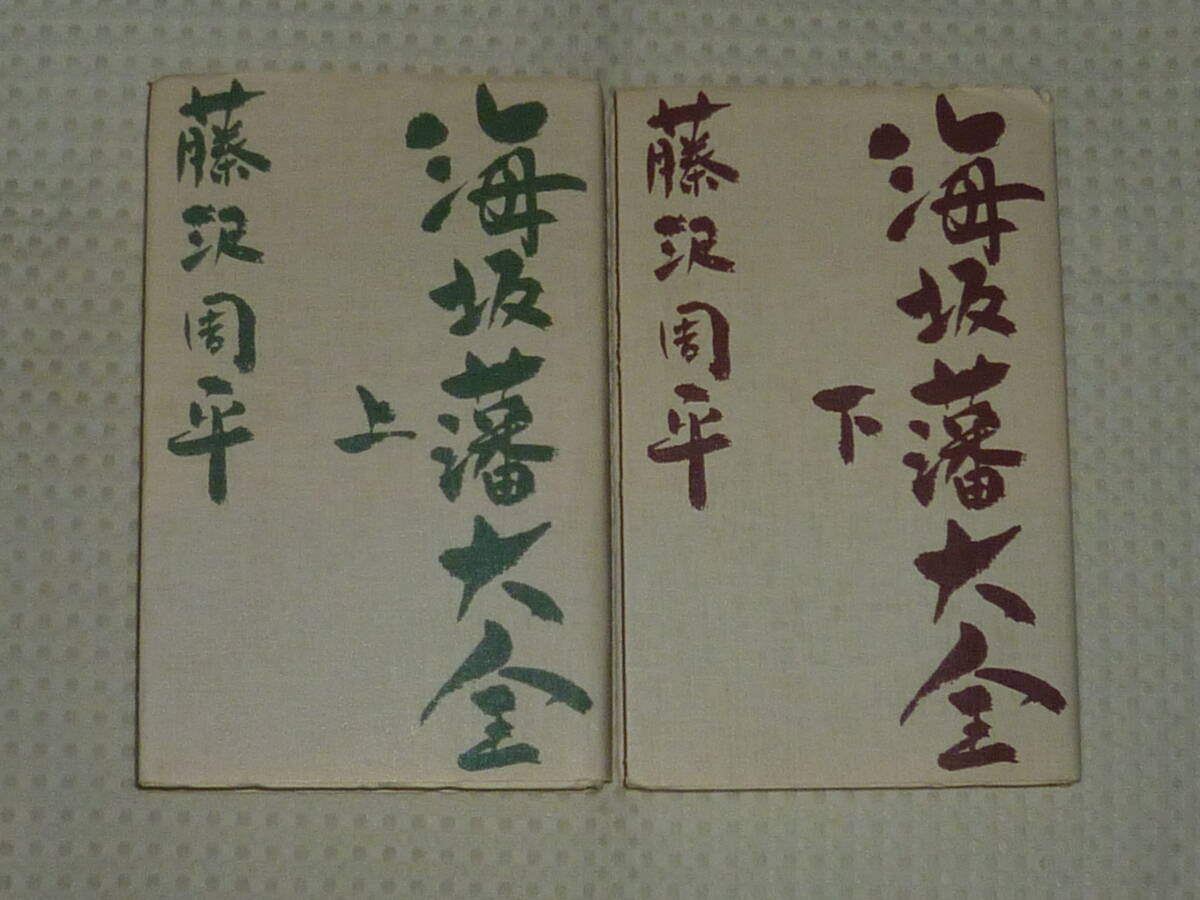 海坂藩大全
上
藤沢周平
海坂藩大全
下
藤沢周平